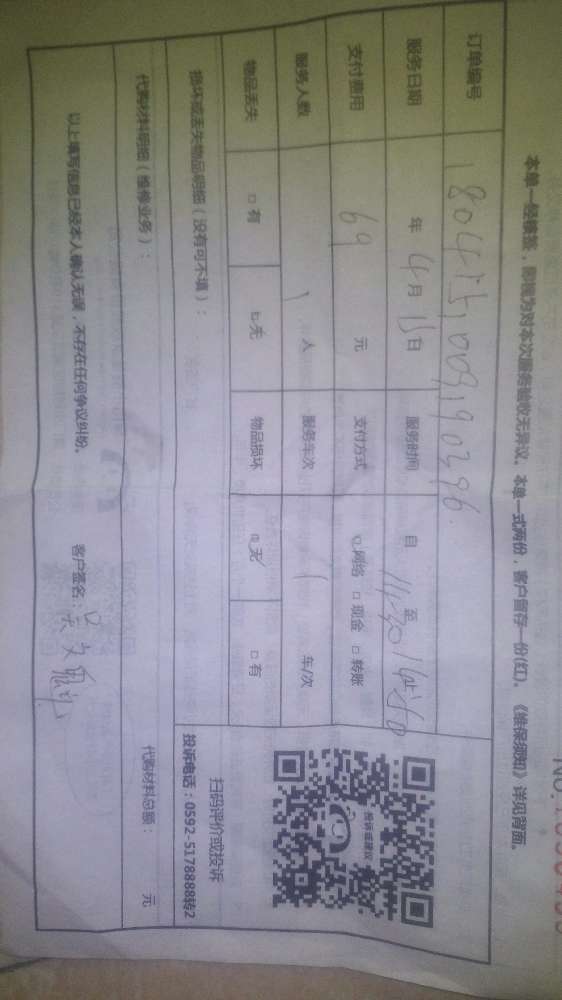 本单一经签签，即视为对本次服务验收无异议。本单一式两份，客户留存一份(红)。《维保须知》详见背面。
订单编号
服务日期 年 4月 15日 服务时间 自 至
支付费用 69 元 支付方式 网络 □ 现金 □ 转账
服务人数 1 人 服务车次 1 车/次
物品丢失 □ 有 无 物品损坏 无 □ 有
损坏或丢失物品明细（没有可不填）：
代购材料明细（维修业务）：
代购材料总额： 元
以上填写信息已经本人确认无误，不存在任何争议纠纷。 客户签名：
投诉或建议
扫码评价或投诉
投诉电话：0592-5178888转2